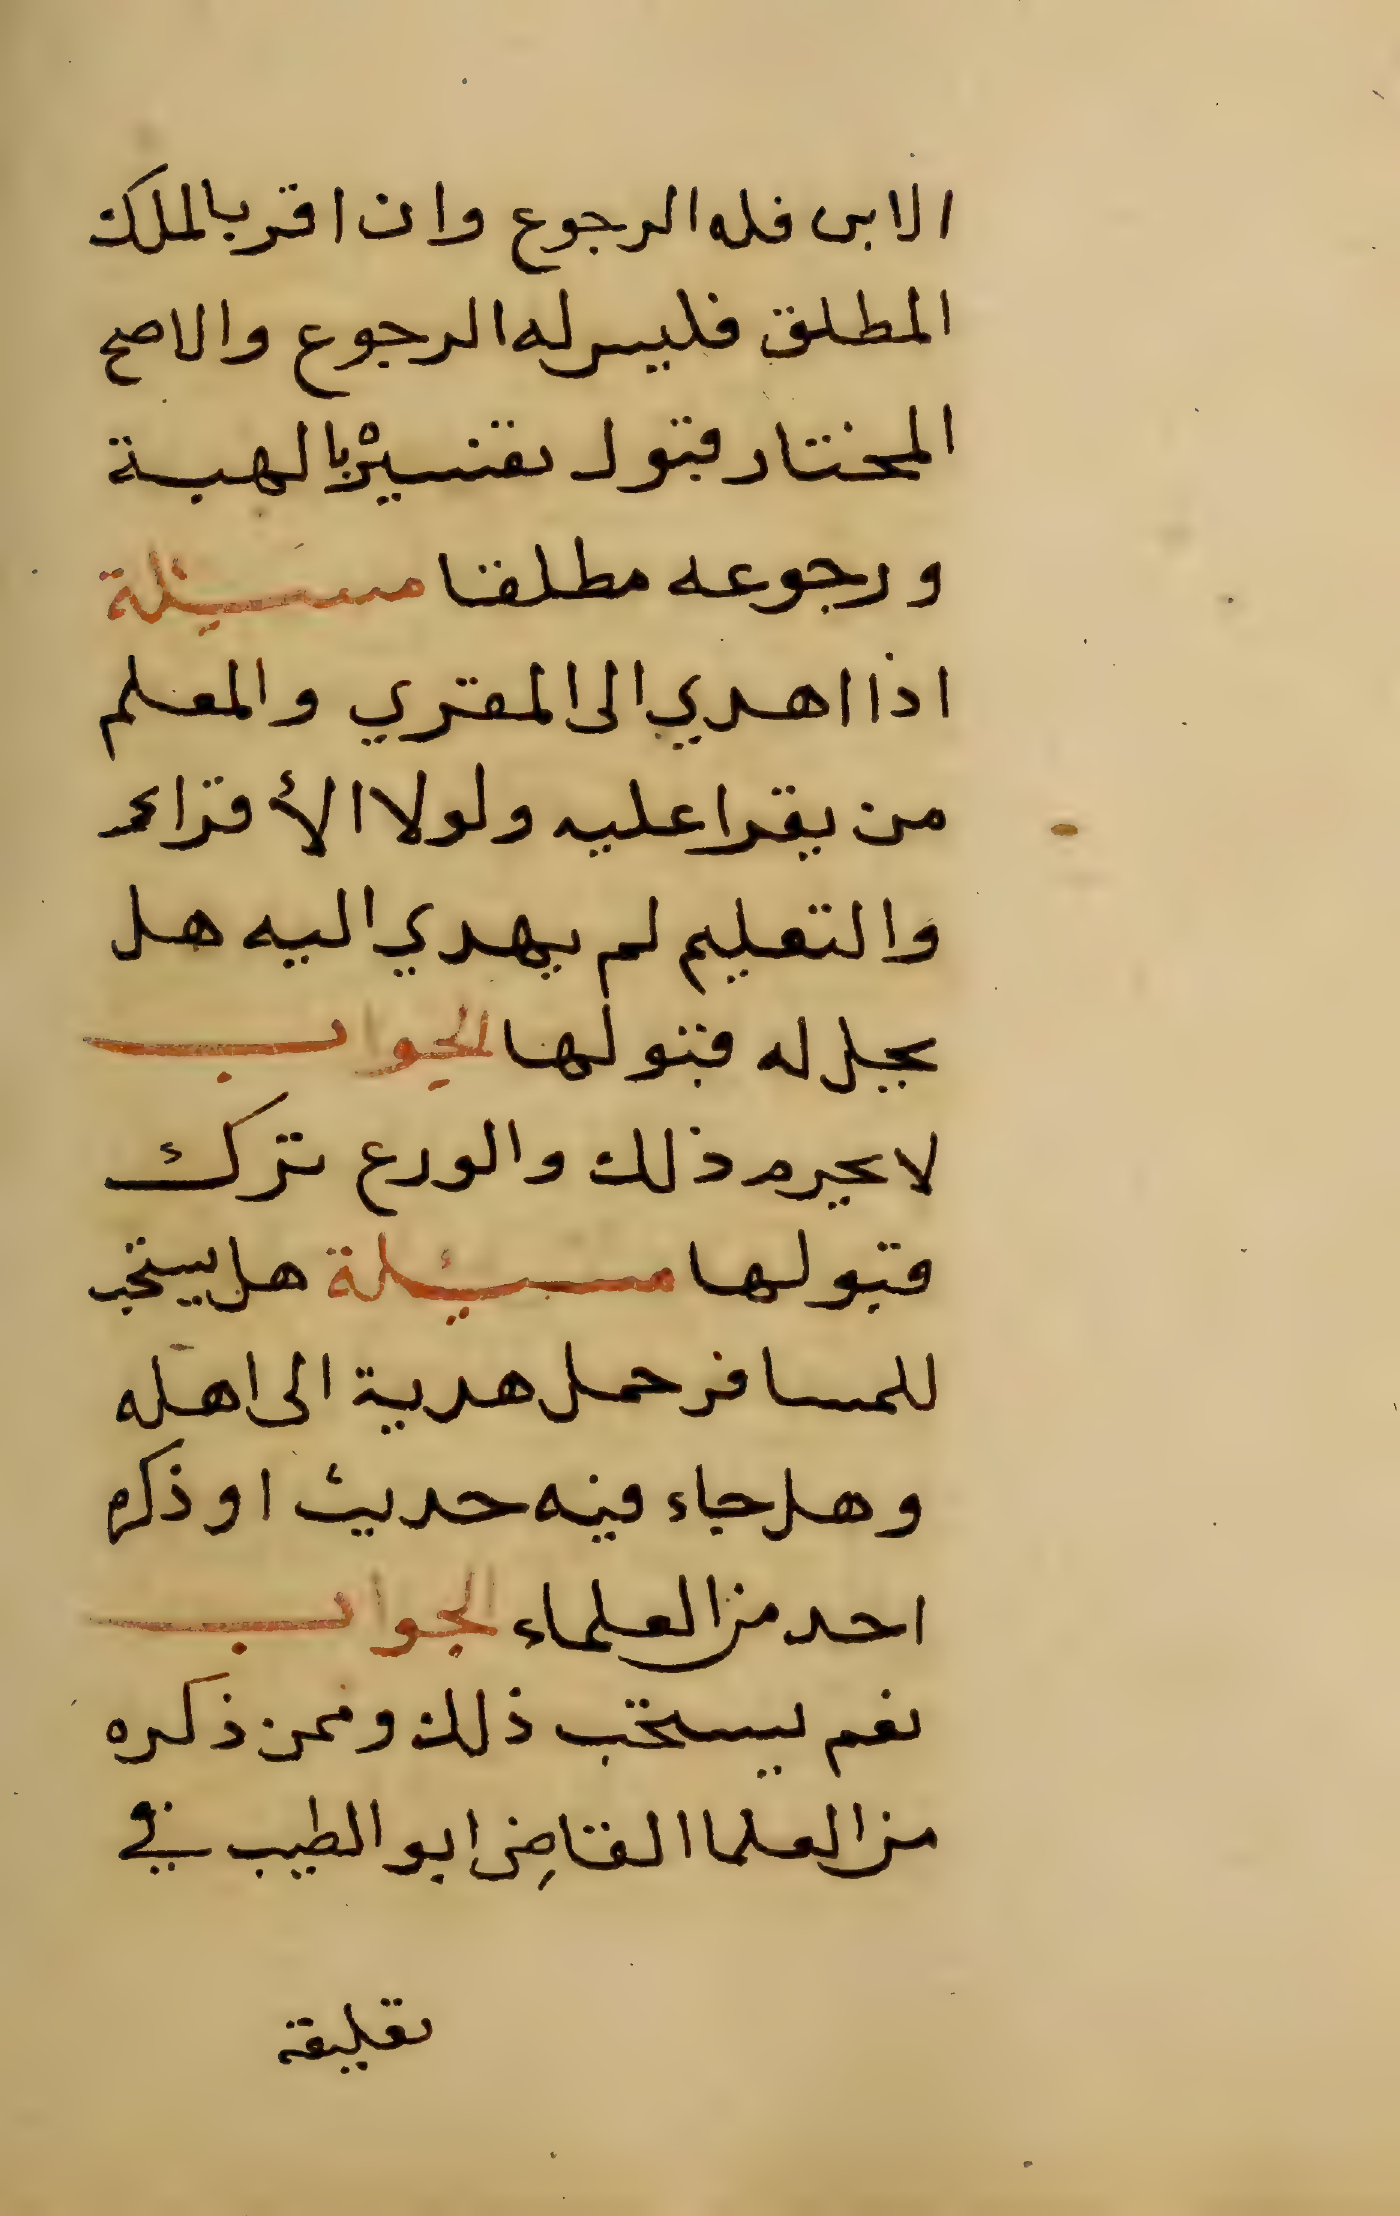 الابن فله الرجوع وان اقر بالملك
المطلق فليس له الرجوع والاصح
المختار قبول تفسيره بالهبة
ورجوعه مطلقا مسئلة
اذا اهدي الى المقري والمعلم
من يقرا عليه ولولا الأقراء
والتعليم لم يهدي اليه هل
يحل له قبولها الجواب
لا يحرم ذلك والورع ترك
قبولها مسئلة هل يستحب
للمسافر حمل هدية الى اهله
وهل جاء فيه حديث او ذكره
احد من العلماء الجواب
نعم يستحب ذلك وممن ذكره
من العلما القاضي ابو الطيب في
تعليقة